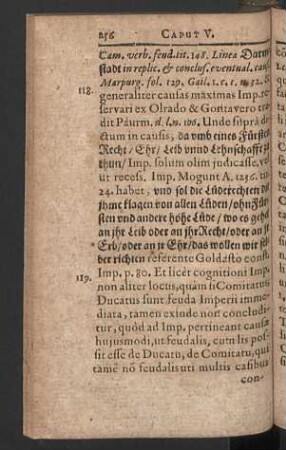 256 CAPUT V.
Cam. verb. feud. tit. 148. Linea Darm
stadt in replic. & conclus. eventual. caus.
Marpurg. fol. 129. Gail. 1. c. 1. n. 52. E
118. generaliter causas maximas Imp. re
servari ex Olrado & Gontavero tra
dit Paurm. d. l. n. 100. Unde suprà di
ctum in causis, da vmb eines Fürsten
Recht / Ehr / Leib vnnd Lehnschafft zu
thun / Imp. solum olim judicasse. ve
lut recess. Imp. Mogunt A. 1236. tit.
24. habet, vnd sol die Lüderechten die
jhme klagen von allen Lüden / ohn Für
sten vnd andere höhe Lüde / wo es gehet
an jhr Leib oder an jhr Recht / oder an jr
* Erb / oder an jr Ehr / das wollen wir sel
ber richten referente Goldasto const.
119. Imp. p. 80. Et licèt cognitioni Imp.
non aliter locus, quàm si Comitatus
Ducatus sunt feuda Imperii imme
diata, tamen exinde non concludi
tur, quòd ad Imp. pertineant causæ
hujusmodi, ut feudalis, cum lis pos
sit esse de Ducatu, de Comitatu, qui
tamē nō feudalis uti multis casibus
con-